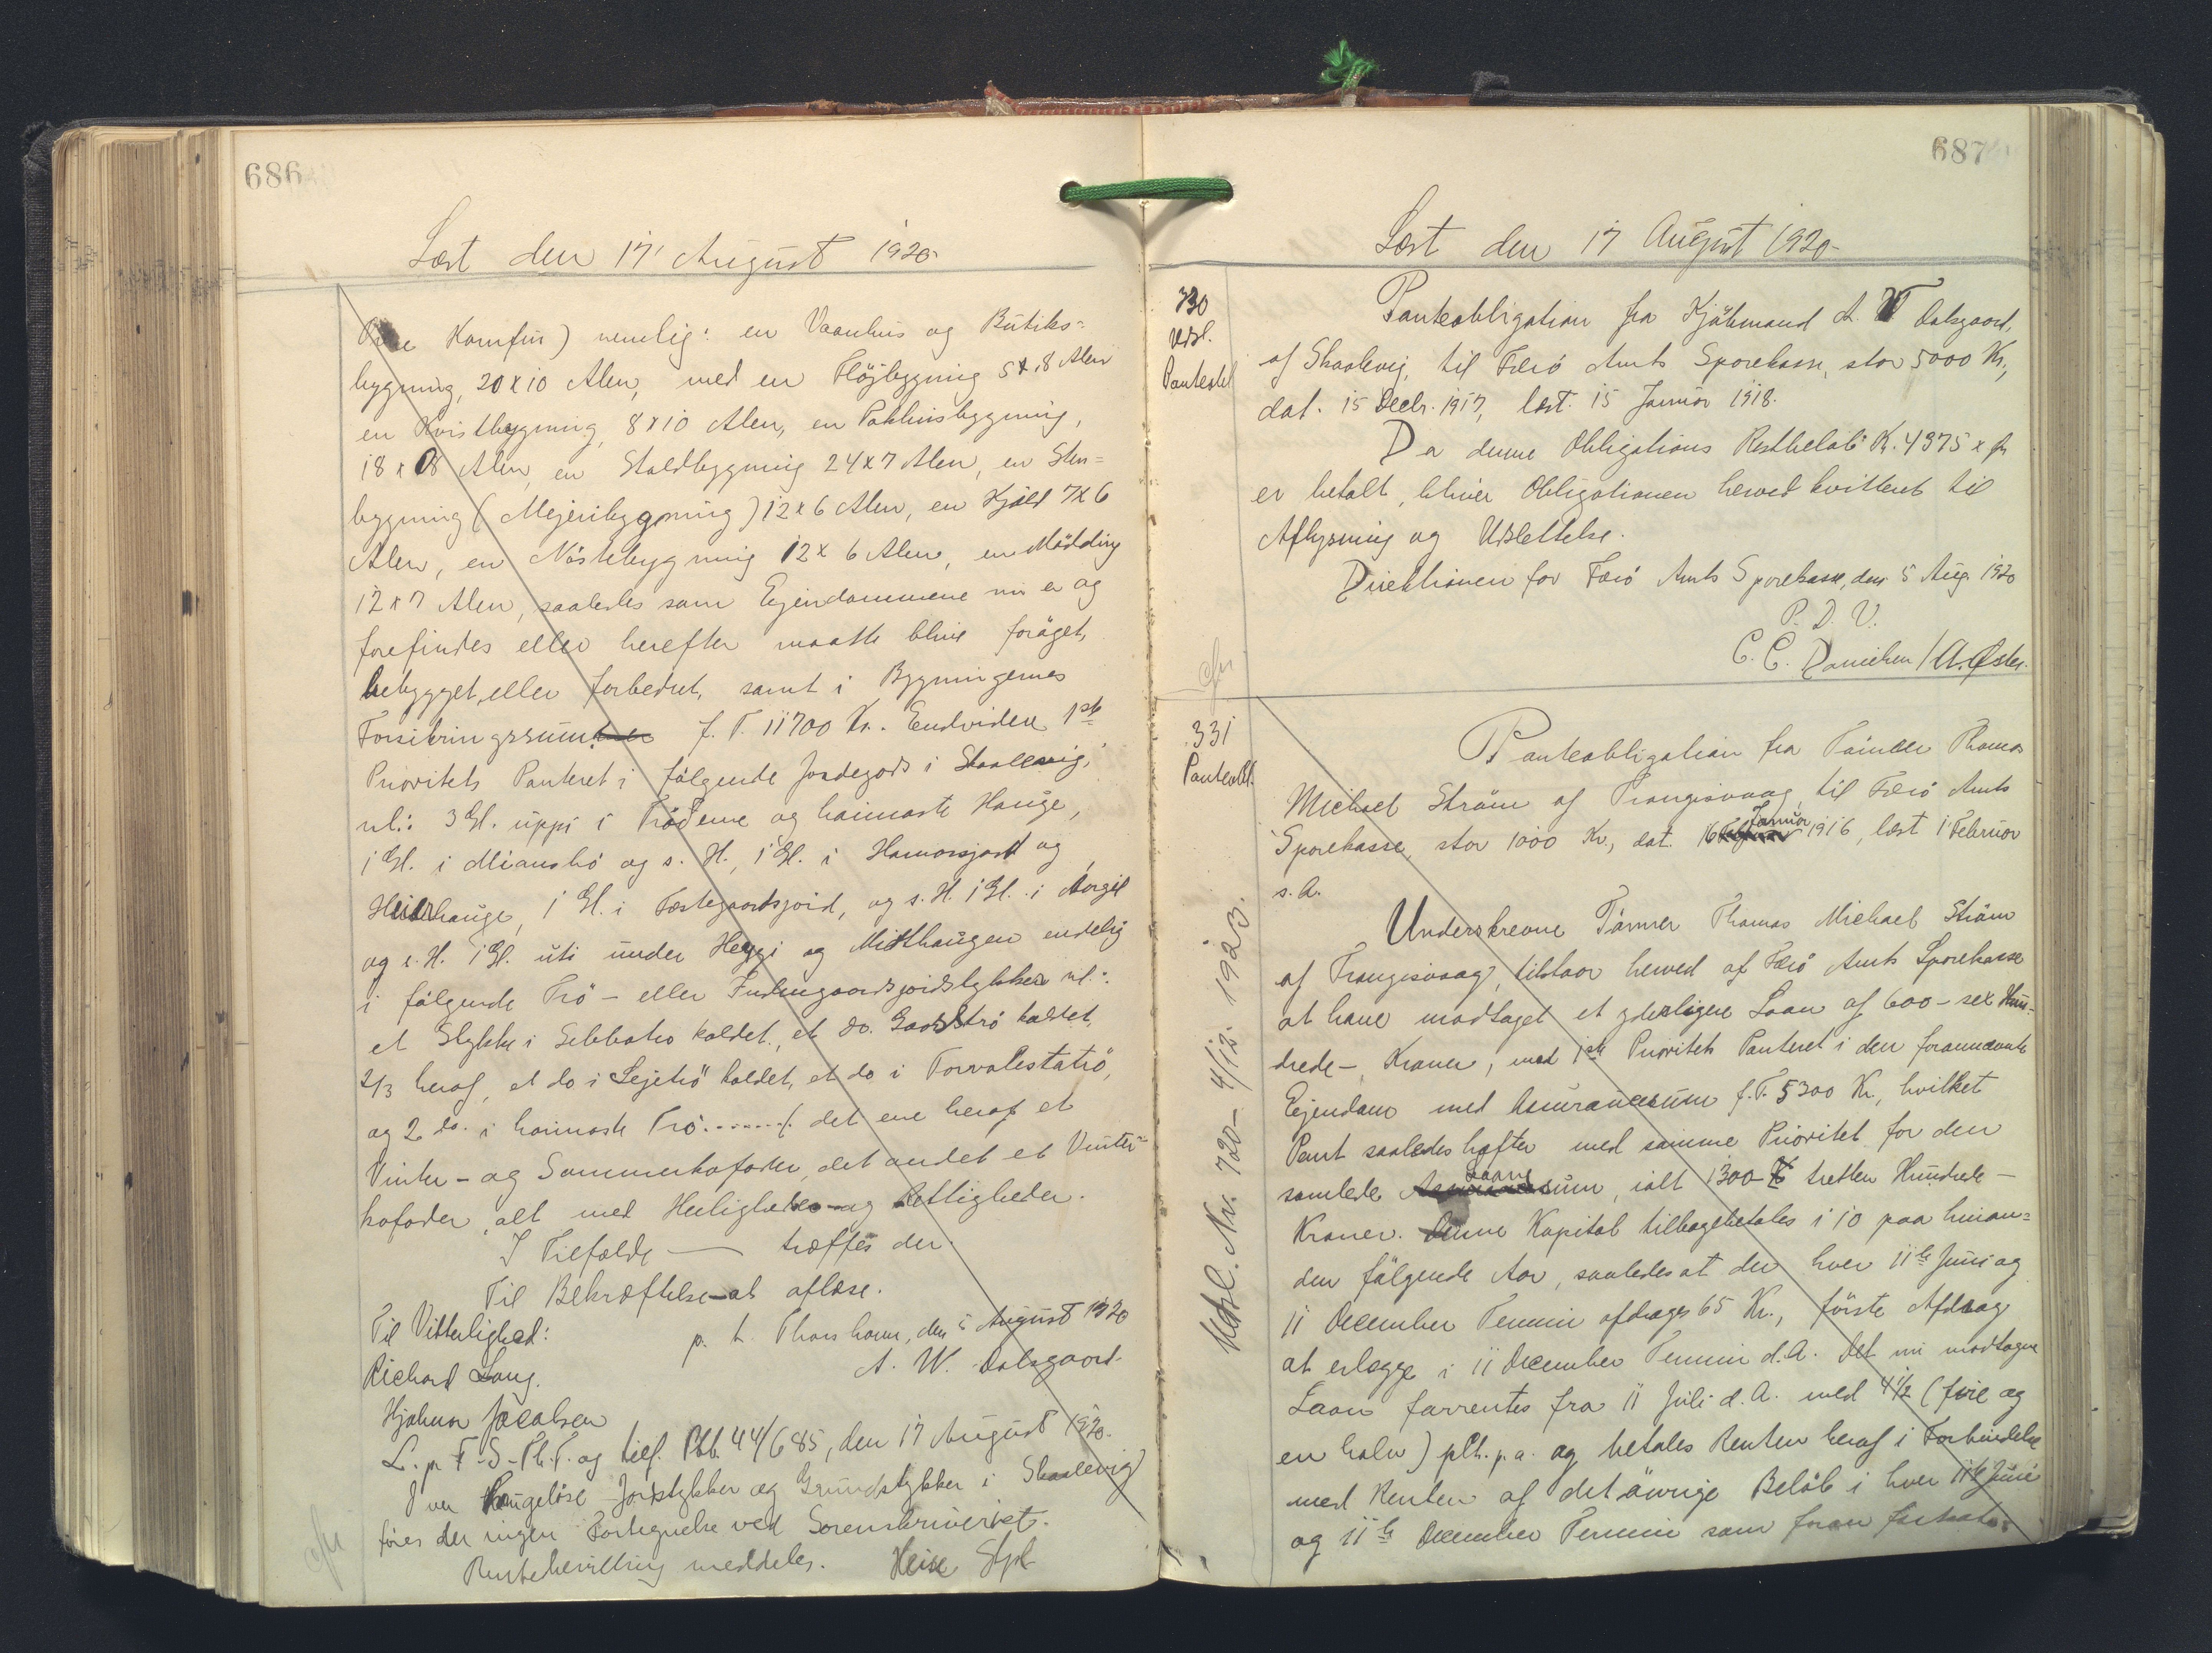 686
Læst den 17 August 1920.
Komfur) nemlig: en Vaanhus og Butiks=
bygning, 20 x 10 Alen, med en Flöjbygning 5 x 8 Alen
en Kvistbygning, 8 x 10 Alen, en Pakhusbygning,
18 x 8 Alen, en Staldbygning 24 x 7 Alen, en Sten=
bygning (Mejeribygning) 12 x 6 Alen, en Hjall 7 x 6
Alen, en Nöstebygning 12 x 6 Alen, en Mödding
12 x 7 Alen, saaledes som Ejendommene nu er og
forefindes eller herefter maatte blive foröget,
bebygget, eller forbedret, samt i Bygningernes
Forsikringssum f. T. 11700 Kr. Endvidere 1ste
Prioritets Panteret i fölgende Jordegods i Skaalevig,
nl.: 3 Gl. uppi i Tröðene og haimaste Hauge,
1 Gl. i Miansbö og s. H., 1 Gl. i Hamarsjord og
Heidrhauge, 1 Gl. i Fæstegaardsjord, og s. H. 1 Gl. i Aargil
og s. H. 1 Gl. uti under Heggi og Mitthaugen endelig
i fölgende Trö - eller Indengaardsjordstykker nl.:
et Stykke i Sebbatro kaldet, et do. Gaardströ kaldet,
2/3 heraf, et do i Lejetrö kaldet, et do i Torvalestatrö,
og 2 do. i haimaste Trö ....... /: det ene heraf et
Vinter- og Sommerkofoder, det andet et Vinter=
kofoder, alt med Herligheder og Rettigheder.
I Tilfælde — træffes der.
Til Bekræftelse – at aflæse.
Til Vitterlighed: p. t. Thorshavn, den 5 August 1920
Richard Long. A. W. Dalsgaard.
Hjalmar Jacobsen
L. p. F.-S.-Th. T. og tilf. Pbb. 44/685, den 17 August 1920.
Over haugelöse Jordstykker og Grundstykker i Skaalevig
föres der ingen Fortegnelse ved Sorenskriveriet.
Rentebevilling meddeles. Heise Stpl
cfr
687
Læst den 17 August 1920.
330
Udsl.
Panteobl
Panteobligation fra Kjöbmand A. W Dalsgaard,
af Skaalevig, til Færö Amts Sparekasse, stor 5000 Kr.,
dat. 15 Decbr. 1917, læst 15 Januar 1918.
Da denne Obligations Restbelöb Kr. 4375 x
er betalt, bliver Obligationen herved kvitteret til
Aflysning og Udslettelse.
Direktionen for Færö Amts Sparekasse, den 5 Aug. 1920
P. D. V.
C. C. Danielsen / A. Øster.
cfr
331
Panteobl.
Panteobligation fra Tömrer Thomas
Michael Ström af Trangisvaag, til Færö Amts
Sparekasse, stor 1000 Kr., dat. 16 Januar 1916, læst 1 Februar
s. A.
Underskrevne Tömrer Thomas Michael Ström
af Trangisvaag, tilstaar herved af Færö Amts Sparekasse
at have modtaget et yderligere Laan af 600 – sex Hun=
drede – Kroner, med 1ste Prioritets Panteret i den forannævnte
Ejendom med Assurancesum f. T. 5300 Kr., hvilket
Pant saaledes hæfter med samme Prioritet for den
samlede Laanesum, ialt 1300 – tretten Hundrede –
Kroner. Denne Kapital tilbagebetales i 10 paa hinan=
den fölgende Aar, saaledes at der hver 11te Juni og
11 December Termin afdrages 65 Kr., förste Afdrag
at erlægge i 11 December Termin d. A. Det nu modtagne
Laan forrentes fra 11 Juli d. A. med 4 1/2 (fire og
en halv) pCt. p. a. og betales Renten heraf i Forbindelse
med Renten af det övrige Belöb i hver 11te Juni
og 11te December Termin som foran fastsat.
Udsl. Nr. 720 – 4/12. 1923.